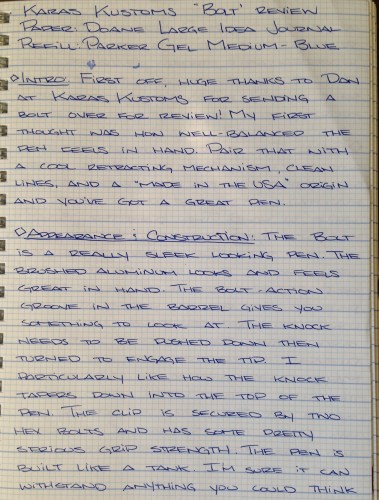 Karas Kustoms "Bolt" Review
Paper: Doane Large Idea Journal
Refill: Parker Gel Medium - Blue
Intro: First off, huge thanks to Dan
at Karas Kustoms for sending a
Bolt over for review! My first
thought was how well-balanced the
pen feels in hand. Pair that with
a cool retracting mechanism, clean
lines, and a "Made in the USA" origin
and you've got a great pen.
Appearance & Construction: The Bolt
is a really sleek looking pen. The
brushed aluminum looks and feels
great in hand. The bolt-action
groove in the barrel gives you
something to look at. The knock
needs to be pushed down then
turned to engage the tip. I
particularly like how the knock
tapers down into the top of the
pen. The clip is secured by two
hex bolts and has some pretty
serious grip strength. The pen is
built like a tank. I'm sure it can
withstand anything you could think